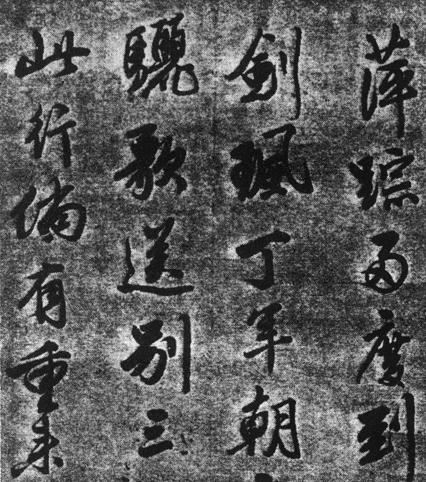 萍踪兩度到
劍珮丁年朝
驪歌送别三
此行倘有重来